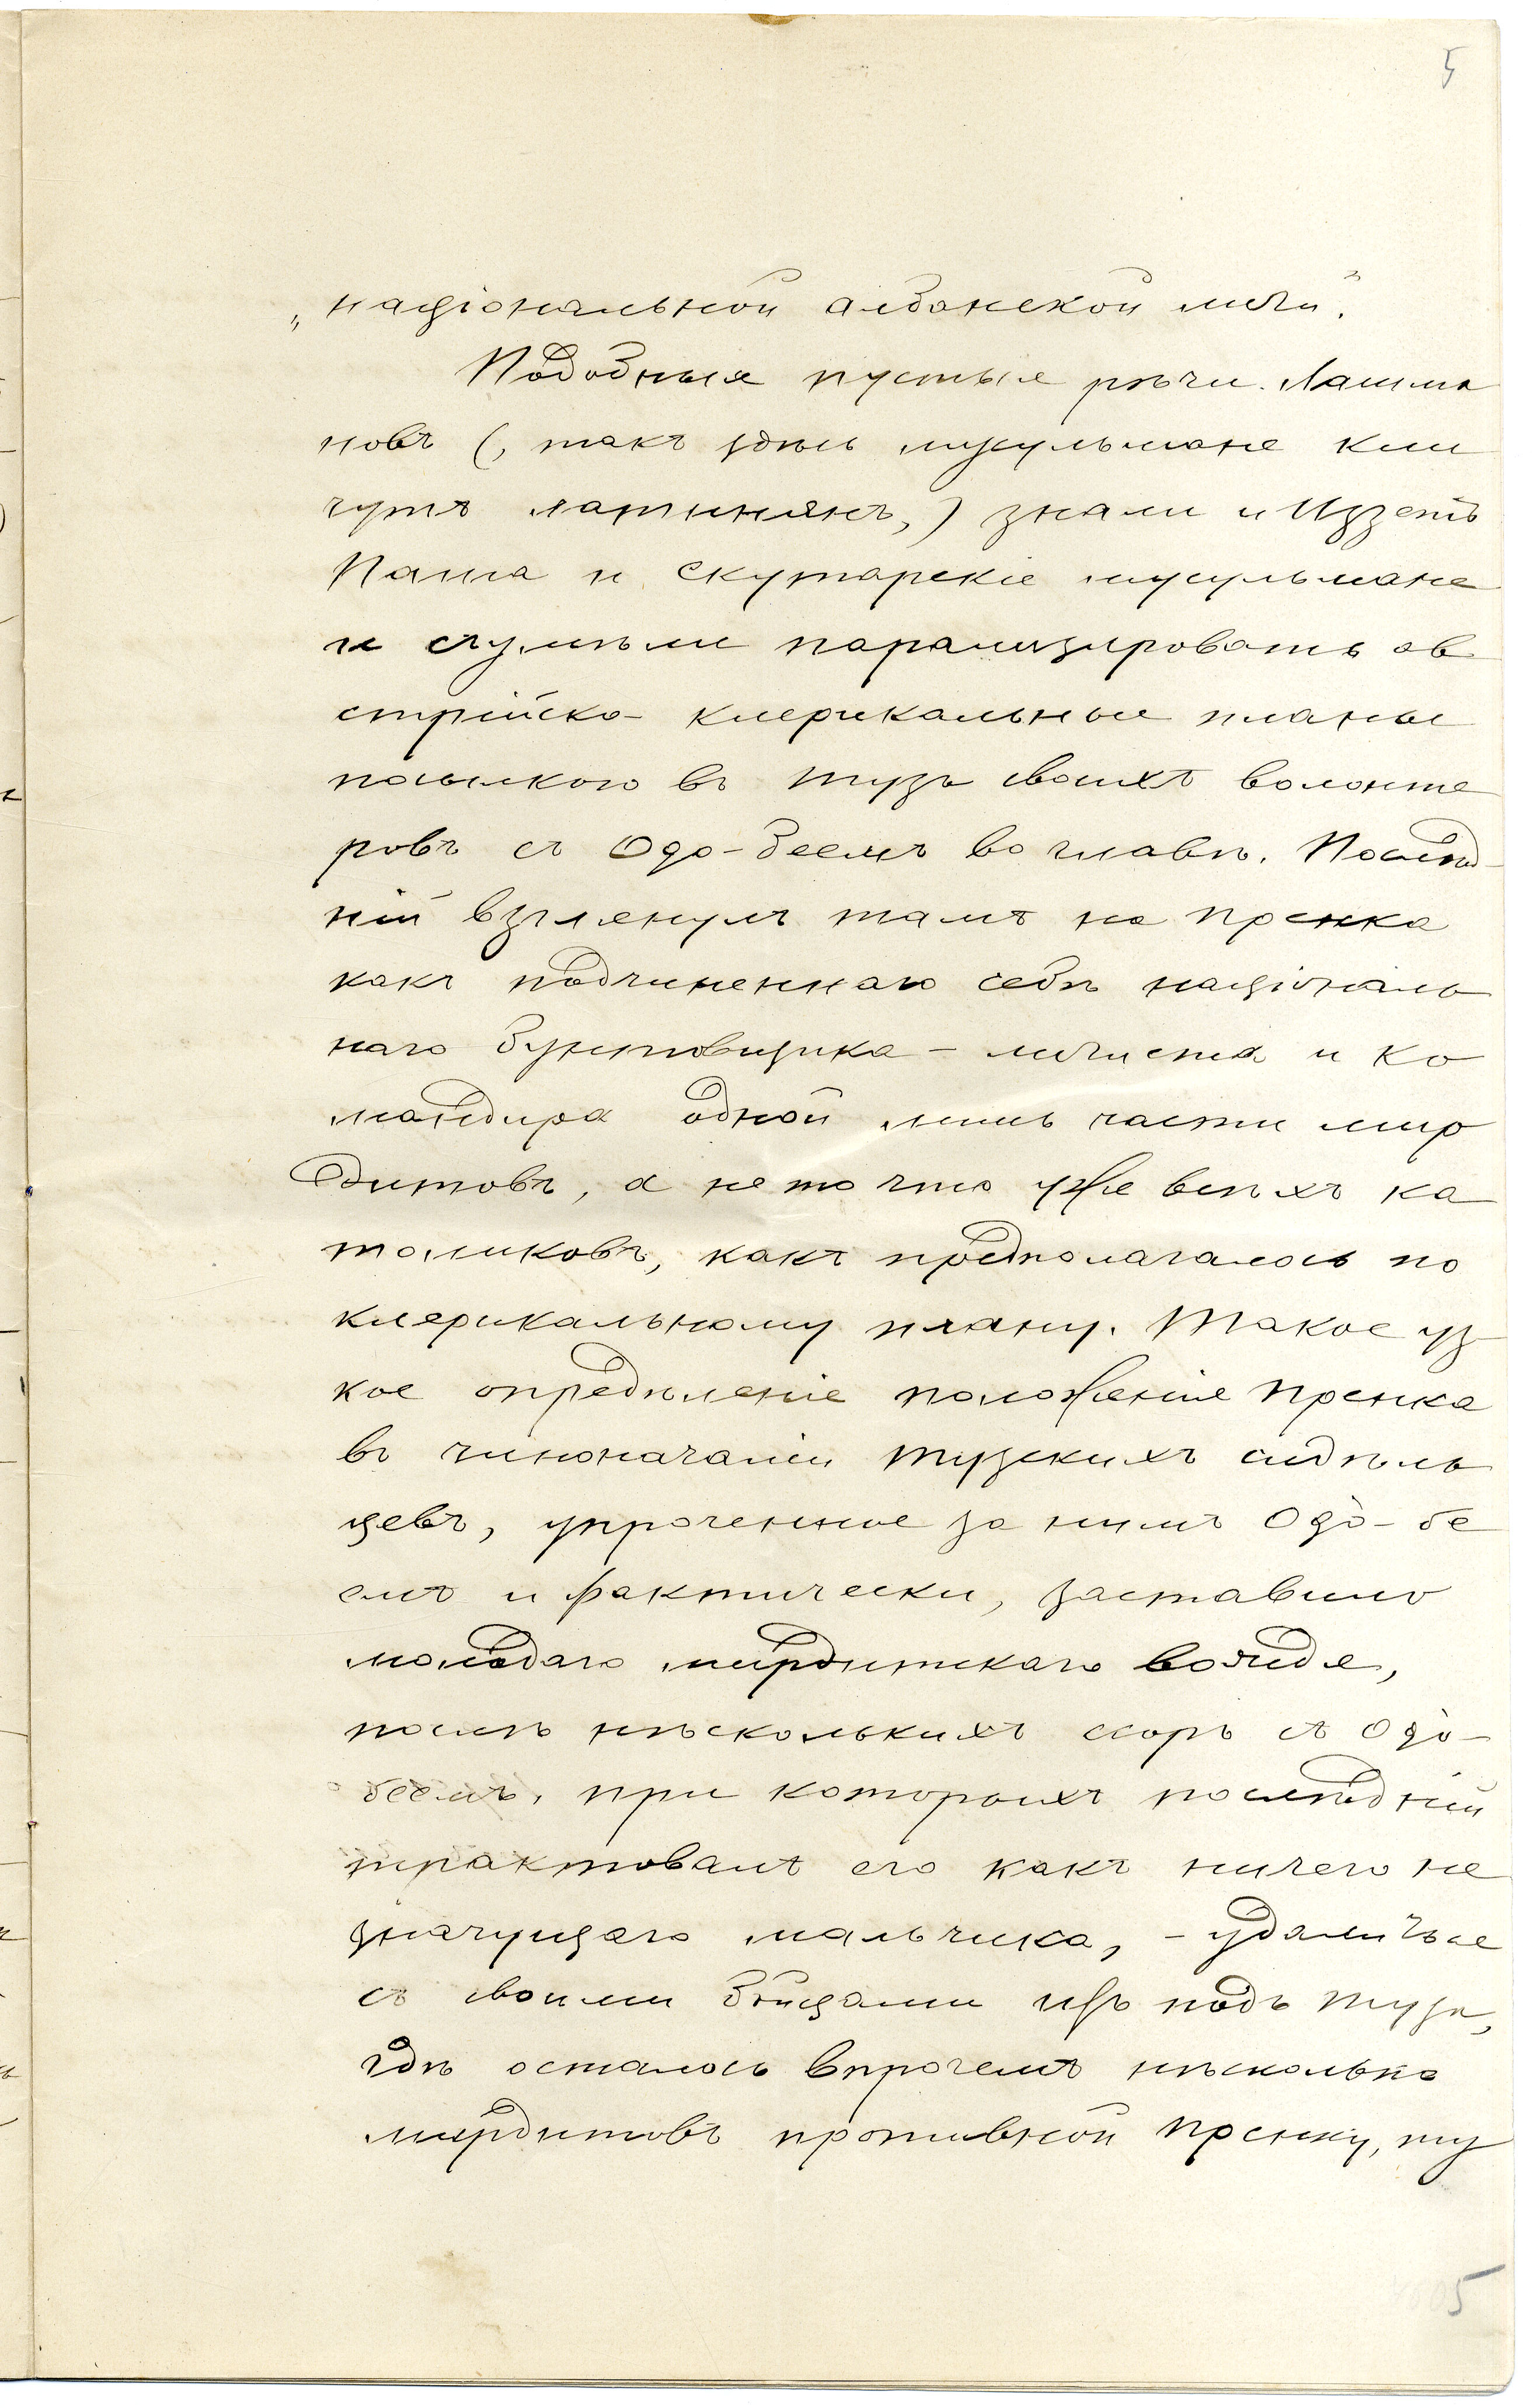 5
„національной албанской лиги".
Подобныя пустыя рѣчи Латима
новъ (, такъ здѣсь мусульмане кли
чутъ латинянъ,) знали и Иззетъ
Паша и Скутарскіе мусульмане
и съумѣли парализировать ав
стрійско-клерикальные планы
посылкою въ Тузъ своихъ волонте
ровъ съ Одо-беемъ во главѣ. Послѣд-
ній взглянулъ тамъ на Пренка
какъ подчиненнаго себѣ націоналъ
наго бунтовщика-лигиста и ко
мандира одной лишь части мир
дитовъ, а не то что уже всѣхъ ка
толиковъ, какъ предполагалось по
клерикальному плану. Такое уз
кое опредѣленіе положенія Пренка
въ чиноначаліи Тузскихъ сидѣль
цевъ, упроченное за нимъ Одо-бе
емъ и фактически, заставило
молодаго мирдитскаго вождя,
послѣ нѣсколькихъ ссоръ съ Одо-
беемъ, при которыхъ послѣдній
трактовалъ его какъ ничего не
значущаго мальчика, - удалиться
съ своими бѣйцами изъ подъ Туза,
гдѣ осталось впрочемъ нѣсколько
мирдитовъ противной Пренку, ту
5